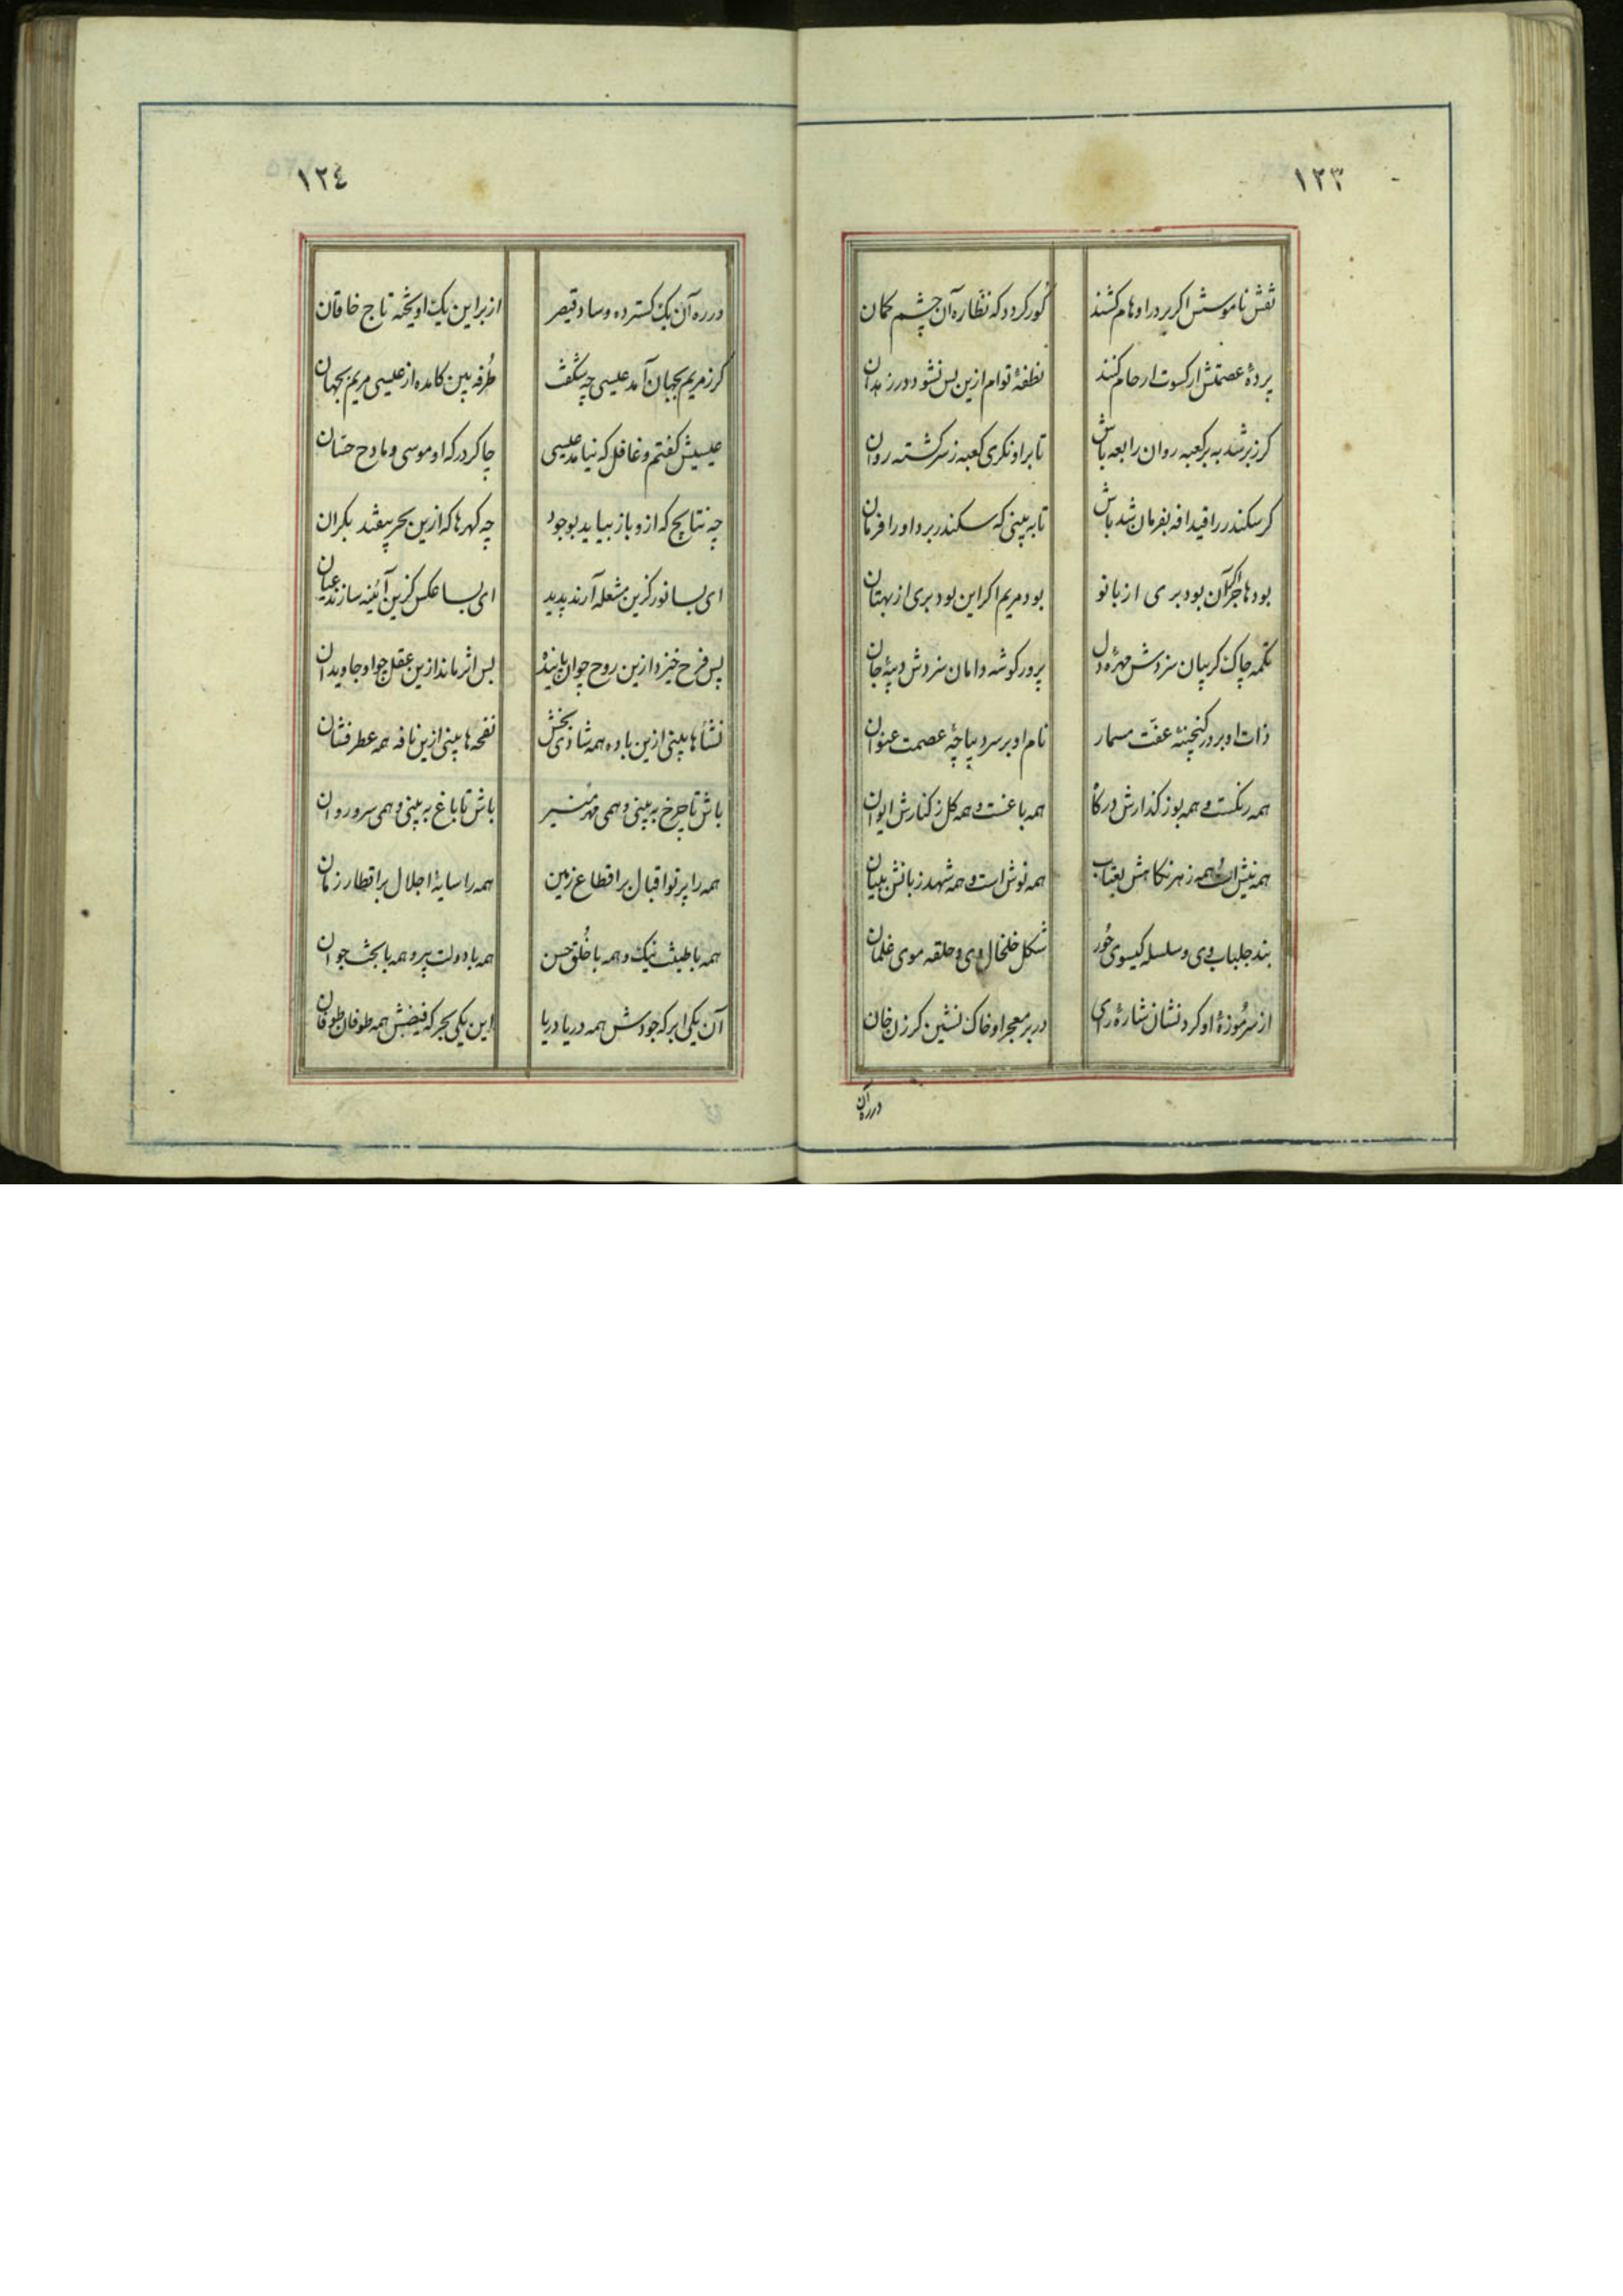 ١٢٣
نقش ناموسش اکر بر در اوهام کشند کور کردد که نظاره آن چشم کمان
پردهٔ عصمتش ار کسوت ارحام کنند نطفهٔ توام ازین پس نشود در زهدان
کرزبر شد به بر کعبه روان رابعه باش تا بر او نکری کعبه ز سر کشته روان
کر سکندر را قیدافه بفرمان شد باش تا به بینی که سکندر برد او را فرمان
بود هاجر اکر آن بود بری از بانو بود مریم اکر این بود بری از بهتان
تکمه چاک کریبان سزدش مهره دل پرور کوشه دامان سزدش دیبهٔ جان
ذات او بر در کنجینهٔ عفت مسمار نام او بر سر دیباچهٔ عصمت عنوان
همه رنکست و همه بوز کذارش درکاه همه باغست و همه کل ز کنارش ایوان
همه نیش است همه زهر نکاهش بعتاب همه نوش است و همه شهد زبانش ببیان
بند جلباب وی و سلسله کیسوی حُور شکل خلخال وی و حلقه موی غلمان
از سر مُوزهٔ او کرد نشان شارهٔ رای در بر معجر او خاک نشین کرزن خان
در ره آن
١٢٤
در ره آن یک کسترده وساد قیصر از بر این یک اویخته تاج خاقان
کرز مریم بجهان آمد عیسی چه شکفت طُرفه بین کامده از عیسی مریم بجهان
عیسیش کفتم و غافل که نیامد عیسی چاکر در که او موسی و مادح حسّان
چه نتایج که ازو باز بیاید بوجود چه کهرها که ازین بحر بیفتد بکران
ای بسا نور کزین مشعله آرند پدید ای بسا عکس کزین آئینه سازند عیان
بس فرح خیزد ازین روح چو ان پاینده بس اثر ماند ازین عقل چو او جاویدان
نشأها بینی ازین باده همه شادی بخش نفحه ها بینی ازین نافه همه عطرفشان
باش تا چرخ به بینی و همی مهر منیر باش تا باغ به بینی و همی سرو روان
همه را پرتو اقبال بر اقطاع زمین همه را سایهٔ اجلال بر اقطار زمان
همه با طینت نیک و همه با خُلق حسن همه با دولت پیر و همه با بخت جوان
آن یکی ابر که جودش همه دریا دریا این یکی بحر که فیضش همه طوفان طوفان